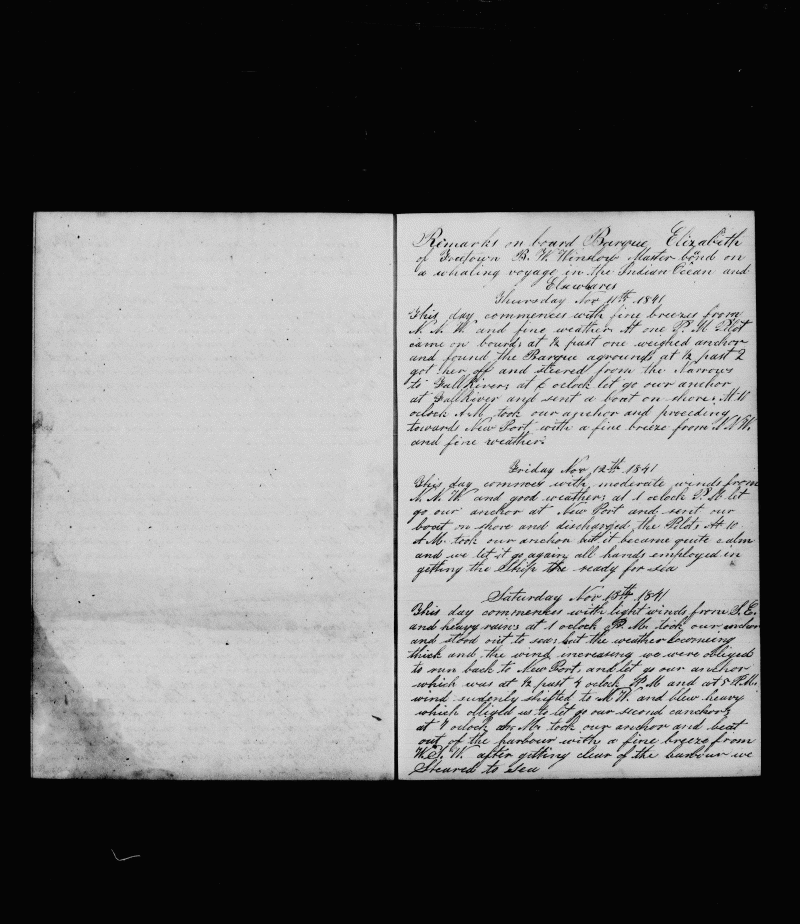 Remarks on board Barque Elizabeth
of Freetown B. W. Winslow Master bond on
a whaling voyage in the Indian Ocean and
Elswhares
Thursday Nov 11th 1841
This day commences with fine breezes from
N. N. W. and fine weather At one P. M. Pilot
came on board; at ½ past one weighed anchor
and found the Barque aground; at ½ past 2
got her off and steered from the Narrows
to Fall River; at oclock let go our anchor
at Fall River and sent a boat on shore. At 10
oclock A.M. took our anchor and preceding
towards New Port with a fine breeze from N N W.
and fine weather;
Friday Nov 12th 1841
This day commces with moderate winds from
N. N. W. and good weather; at 1 oclock P. M. let
go our anchor at New Port and sent our
boat on shore and discharged the Pilot; At 10
A M. took our anchor but it became quite calm
and we let it go again; all hands employed in
getting the Ship the ready for sea
Saturday Nov 13th 1841
This day commences with light winds from S. E.
and heavy rain; at 1 oclock P. M. took our anchor
and stood out to sea; but the weather becomeing
thick and the wind increasing we were obliged
to run back to New Port; and let go our anchor
which was at ½ past 4 oclock P M and at 5 P. M.
wind sudenly shifted to N W. and blew heavy
which obliged us to let go our second anchor;
at oclock A. M. took our anchor and beat
out of the harbour with a fine breeze from
W. S. W. after getting clear of the harbour we
Steared to Sea